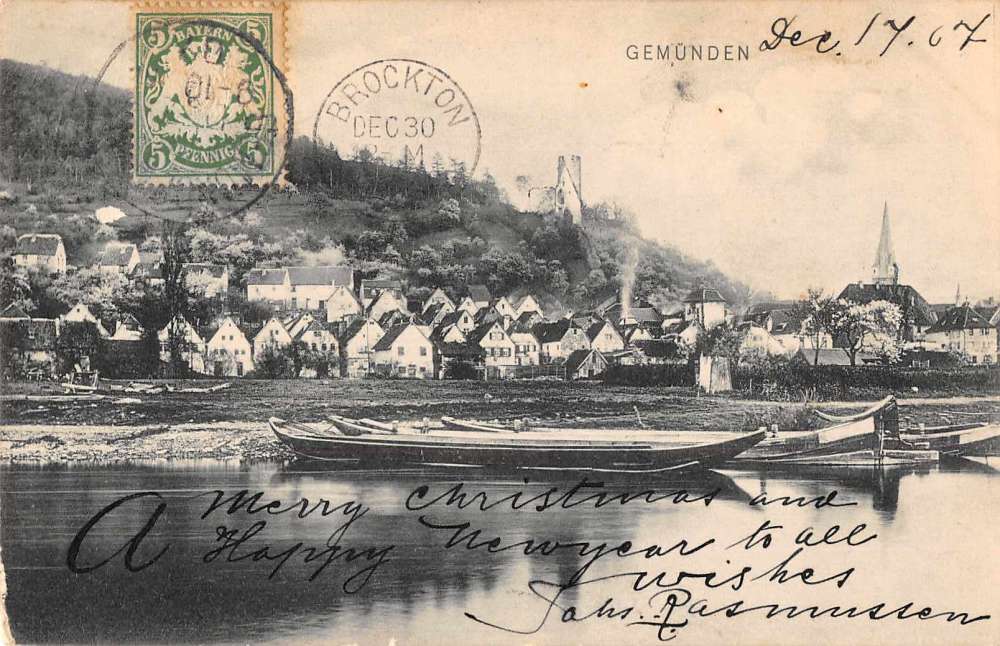 5 BAYERN 5
5 PFENNIG 5
BROCKTON
DEC 30
GEMÜNDEN
Dec. 17. 07
A Merry Christmas and
Happy Newyear to all
wishes
Johs. R. Rasmussen